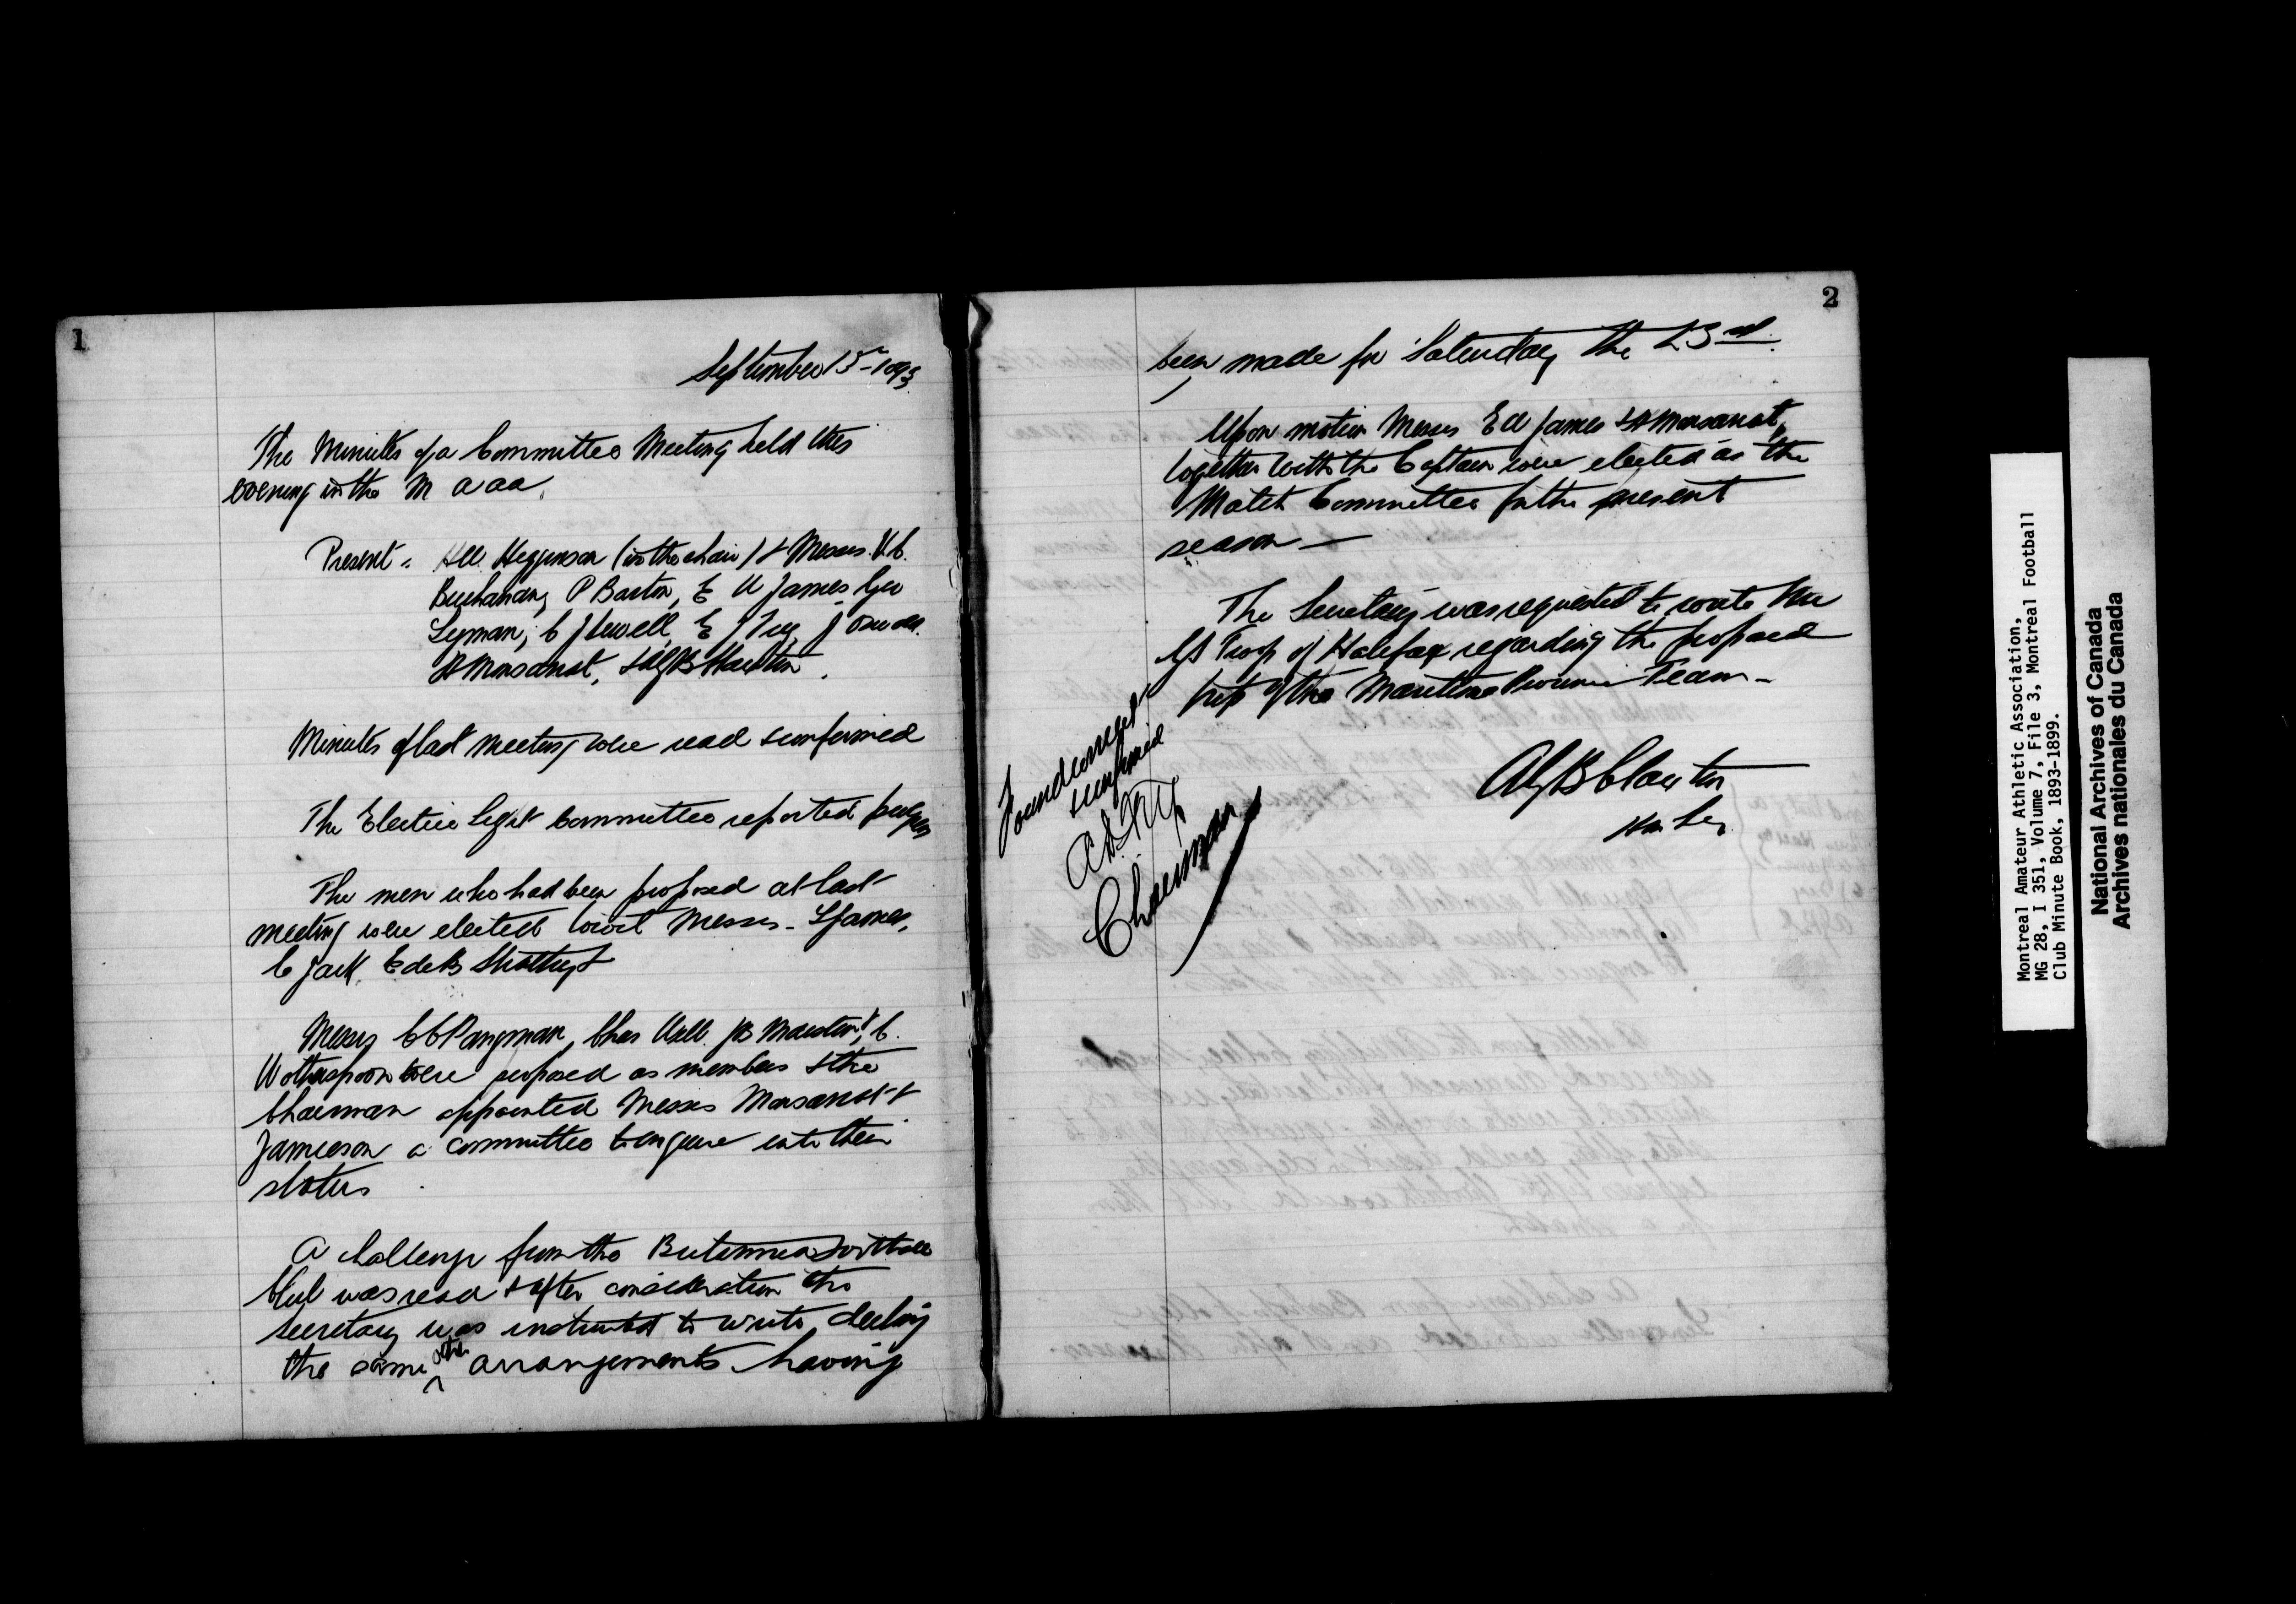 1
September 15th 1893
The Minutes of a Committee Meeting held this
evening in the M a a a.
Present - Higginson (in the chair) & Messrs
Buchanan, P Barton, E A James, Geo
Lyman, C J Sewell, E J
H Monsarrat, &
Minutes of last meeting were read & confirmed
The Electric Light Committee reported progress
The men who had been proposed at last
meeting were elected Messrs. James,
C Jack,
Messrs C C Pangman, Chas
Wotherspoon were proposed as members & the
Chairman appointed Messrs Monsarrat &
Jamieson a committee to enquire into their
status
A challenge from the Britannia Football
Club was read & after consideration the
Secretary was instructed to write,
the same other arrangements having
2
been made for Saturday the 23rd.
Upon motion Messrs E A James & H Monsarrat,
together with the Captain were elected as the
Match Committee for the present
season —
The Secretary was requested to write
Troop of Halifax regarding the proposed
trip of the Maritime Province Team -
Hon Sec
Found correct
& confirmed
Chairman
Montreal Amateur Athletic Association,
MG 28, I 351, Volume 7, File 3, Montreal Football
Club Minute Book, 1893-1899.
National Archives of Canada
Archives nationales du Canada